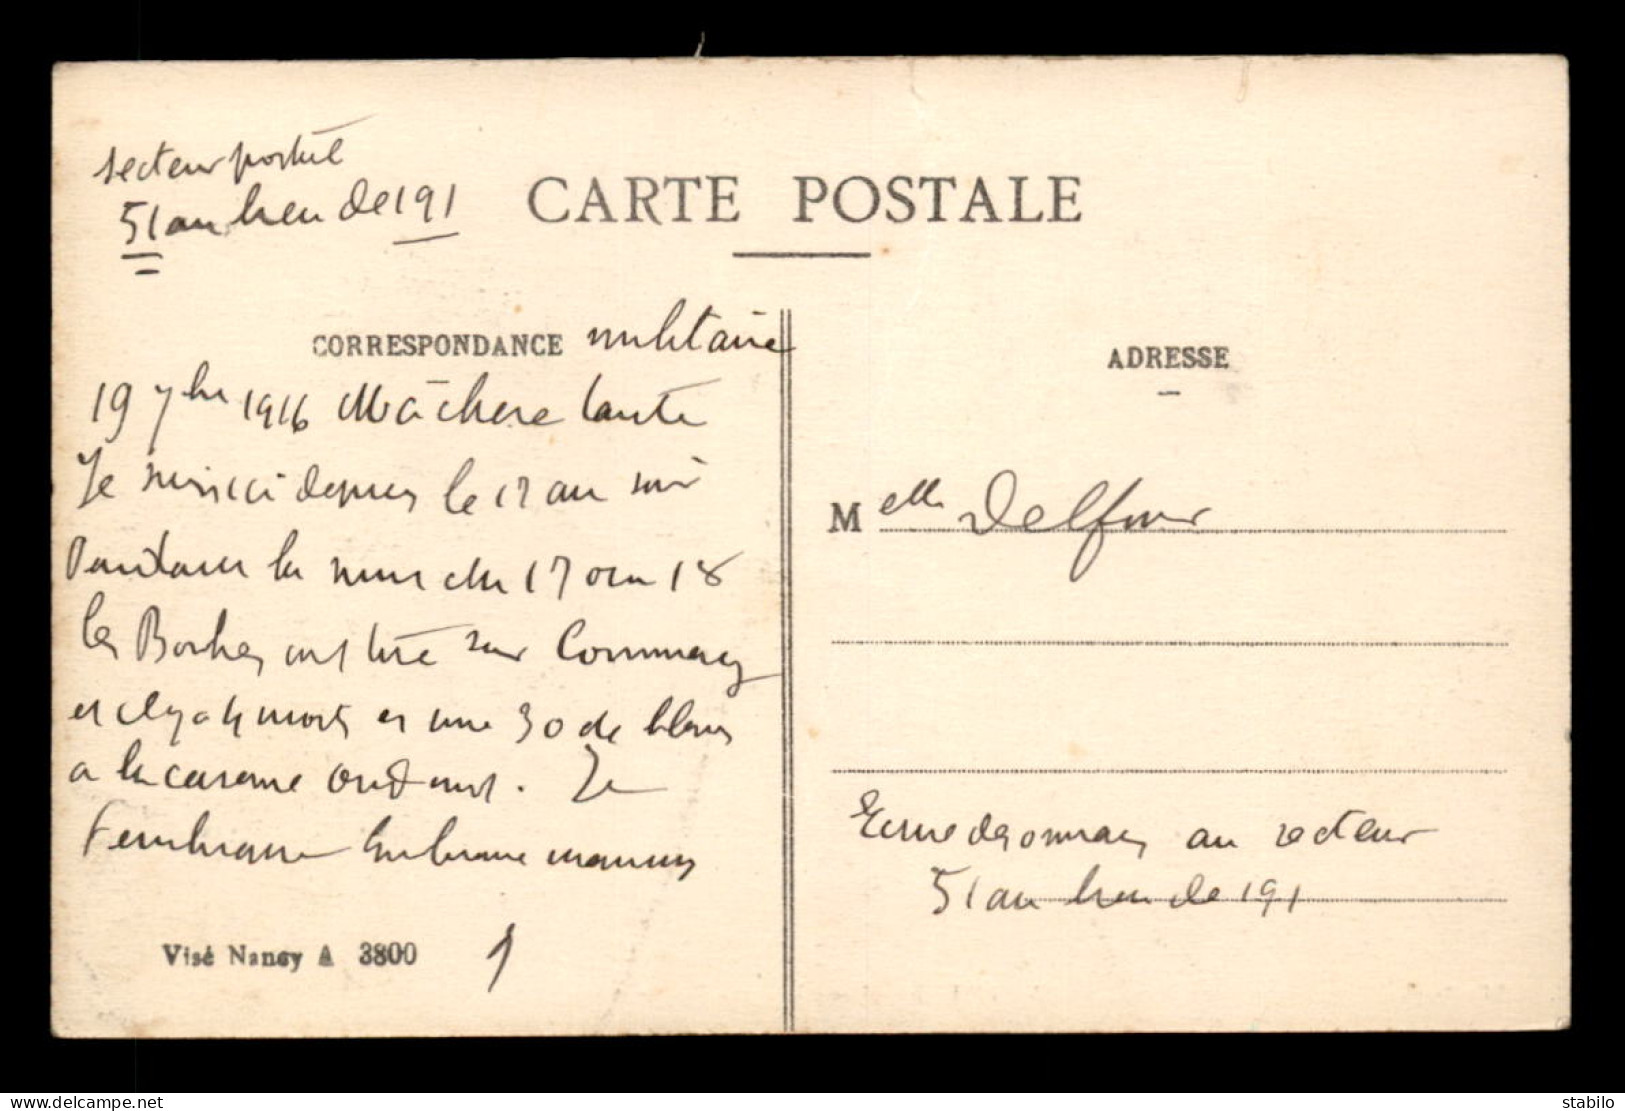 secteur postal
51 au lieu de 191
CARTE POSTALE
CORRESPONDANCE militaire
ADRESSE
19 7bre 1916 Ma chere tante
Je suis ici depuis le 17 au soir
Melle Delfour
Pendant la nuit du 17 au 18
les Boches ont tiré sur Commercy
et il y a 4 morts et une 30 de blessés
a la caserne Oudinot. Je
t'embrasse Embrasse maman
Ecrire desormais au secteur
51 au lieu de 191
Visé Nancy A 3800 1
www.delcampe.net
stabilo